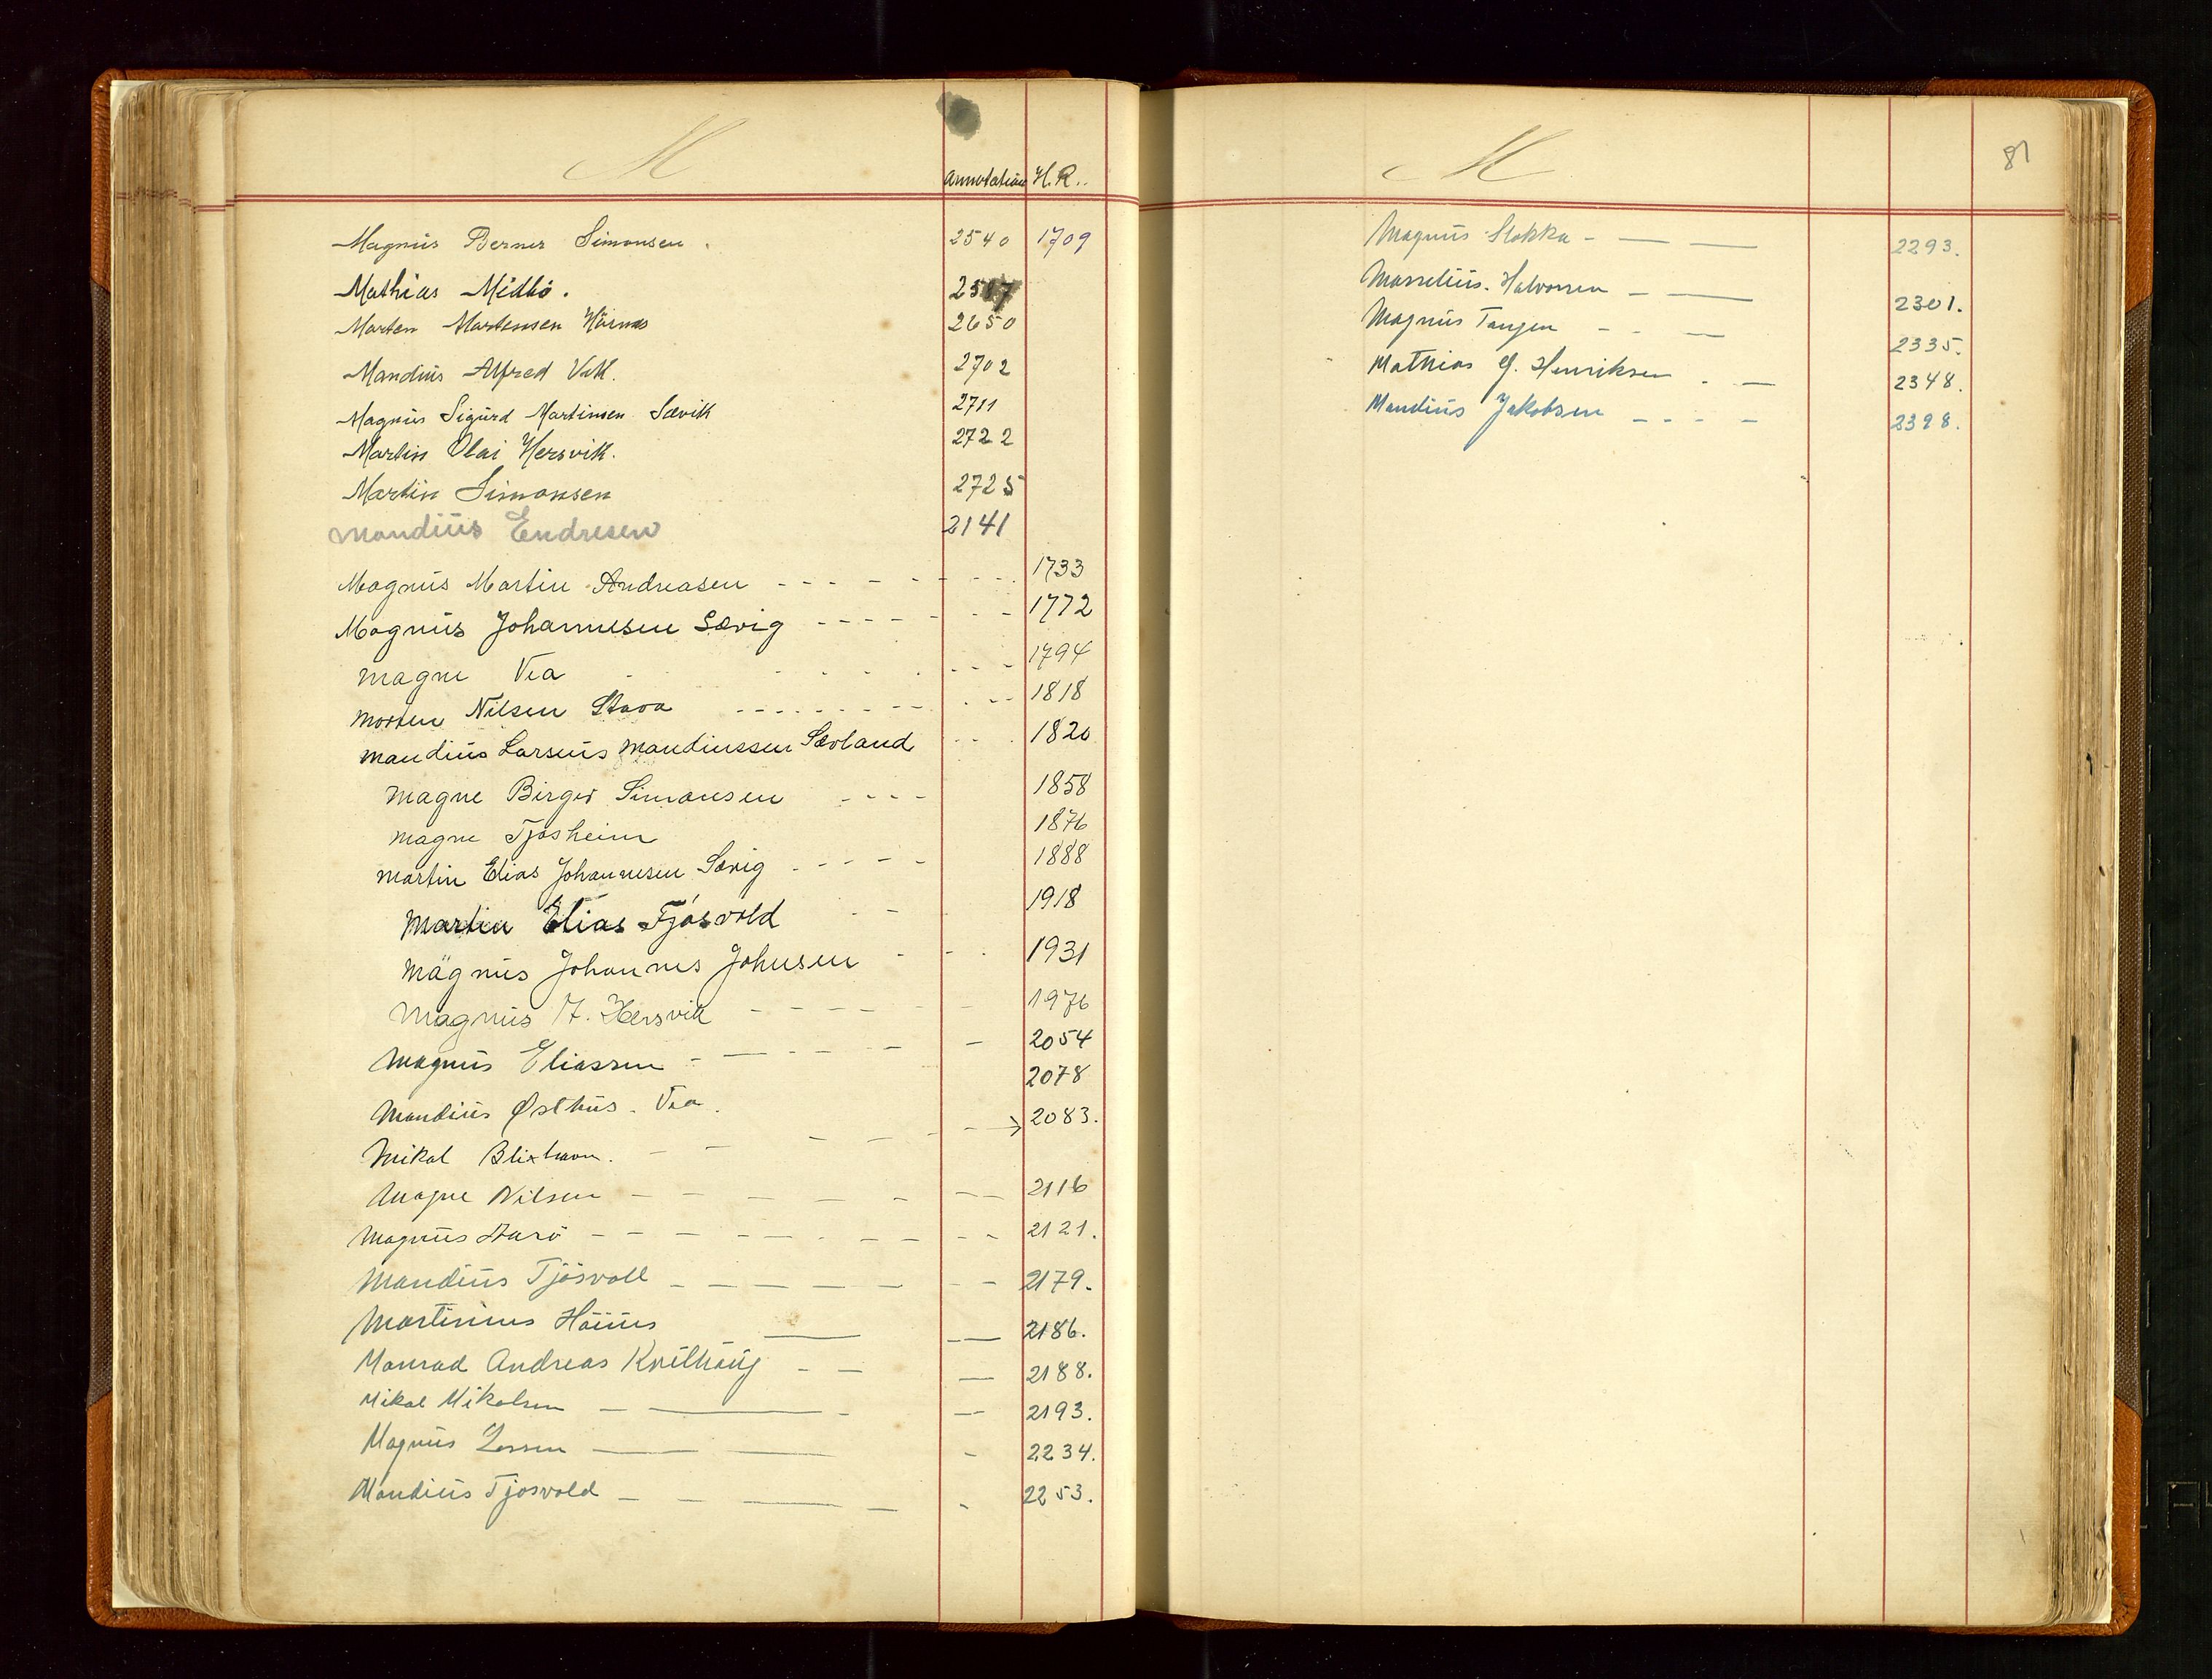 M
Annotation H.R..
Magnus Berner Simonsen. 2540 1709
Mathias Midbö. 2587
Marten Martensen Hörnes 2650
Mandius Alfred Vik. 2702
Magnus Sigurd Martinsen Sævik 2711
Martin Olai Hersvik. 2722
Martin Simonsen 2725
Mandius Endresen 2141
Magnus Martin Andreasen - - - - - - - 1733
Magnus Johannesen Sævig - - - - - - 1772
Magne Vea - - - - 1794
Morten Nilsen Stava - - - - - - - 1818
Mandius Larsens Mandiussen Sævland - - 1820
Magne Birger Simonsen - - - - 1858
Magne Tjøsheim 1876
Martin Elias Johannesen Sævig - - - - 1888
Martin Elias Tjösvold - - 1918
Magnus Johannes Johnsen - - - 1931
Magnus H. Hersvik - - - - 1976
Magnus Eliassen - - - - - 2054
Mandius Østhus. Vea. 2078
Mikal Blixhavn. - - - - - → 2083.
Magne Nilsen - - - - - - 2116
Magnus Aarö - - - - - - 2121.
Mandius Tjösvoll - - - - - - 2179.
Martinius Höines — — 2186.
Monrad Andreas Kvilhaug - - — 2188.
Mikal Mikalsen - — - — 2193.
Magnus Larsen — — - 2234.
Mandius Tjøsvold - - — - - 2253.
M
81
Magnus Stokka - — — 2293.
Masselius Halvorsen - — 2301.
Magnus Tangen - - — 2335.
Mathias G. Henriksen . — 2348.
Mandius Jakobsen - - - - 2398.